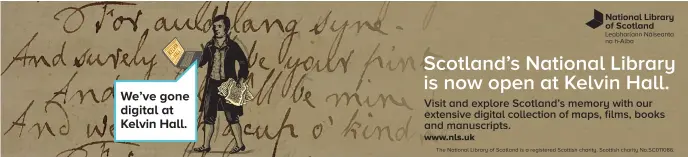 For auld lang syne.
And surely be your pint
And I'll be mine
And we' cup o' kind
We've gone
digital at
Kelvin Hall.
National Library
of Scotland
Leabharlann Nàiseanta
na h-Alba
Scotland's National Library
is now open at Kelvin Hall.
Visit and explore Scotland's memory with our
extensive digital collection of maps, films, books
and manuscripts.
www.nls.uk
The National Library of Scotland is a registered Scottish charity. Scottish charity No.SC011086